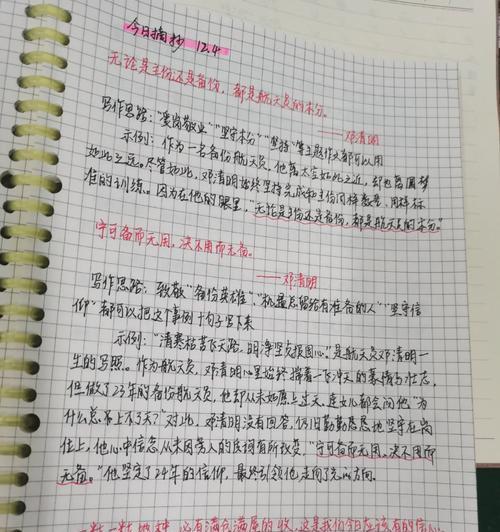 今日摘抄 12.4
无论是主份还是备份，都是航天员的本分。
——邓清明
写作思路：“爱岗敬业”“坚守本分”“坚持”等主题作文都可以用
示例：作为一名备份航天员，他离太空如此之近，却也离圆梦
如此之远。尽管如此，邓清明始终坚持完成和主份同样数量、同样标
准的训练。因为在他的眼里，“无论是主份还是备份，都是航天员的本分。”
宁可备而无用，决不用而无备。
——邓清明
写作思路：致敬“备份英雄”、“机遇总留给有准备的人”“坚守信
仰”都可以把这个事例十句子写下来
示例：“清寒枯苦飞天路，明净坚贞报国心。”是航天员邓清明一
生的写照。作为航天员，邓清明心里始终揣着一飞冲天的豪情与壮志，
但做了23年的备份航天员，他却从未如愿上过天，连女儿都会问他“为
什么总是上不了天？”对此，邓清明没有回答，仍旧勤勤恳恳地坚守在岗
位上，他心中信念从未因旁人的质询有所改变，“宁可备而无用，决不用而
无备。”他坚定了24年的信仰，最终引领他走向了光的方向。
一耕一耘地种，必有满仓满屋的收，这是我们今日应该有的信心